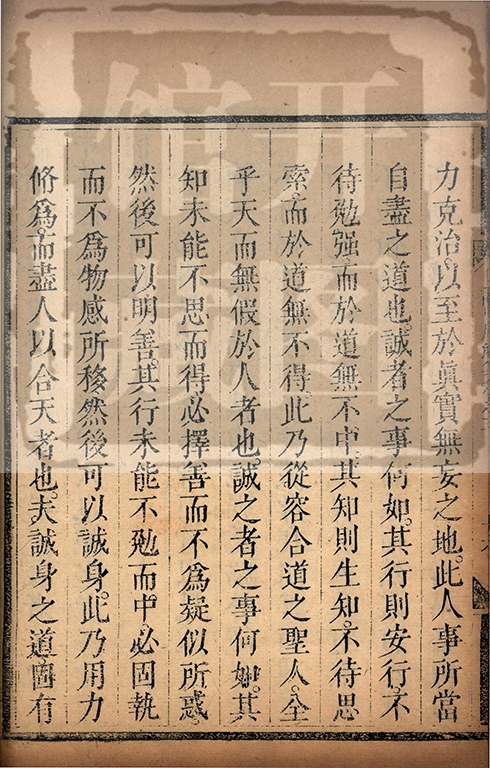 力克治。以至於眞實無妄之地。此人事所當
自盡之道也。誠者之事何如。其行則安行。不
待勉强。而於道無不中。其知則生知。不待思
索。而於道無不得。此乃從容合道之聖人。全
乎天而無假於人者也。誠之者之事何如。其
知未能不思而得。必擇善而不爲疑似所惑
然後可以明善。其行未能不勉而中。必固執
而不爲物感所移。然後可以誠身。此乃用力
脩爲。而盡人以合天者也。夫誠身之道固有